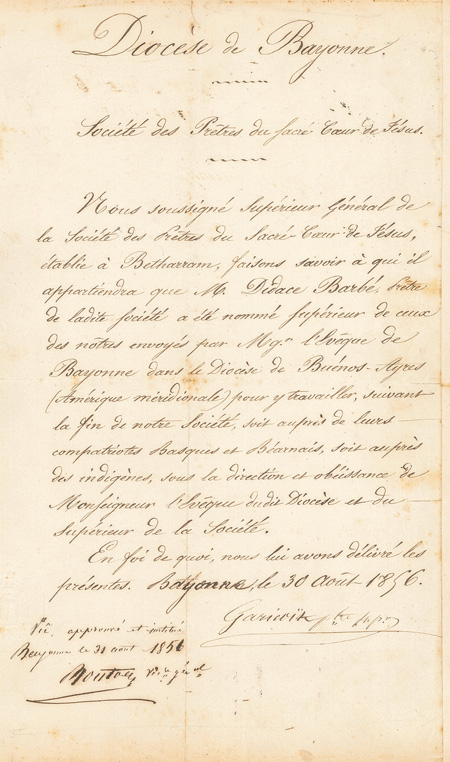 Diocèse de Bayonne.
Société des Prêtres du Sacré Cœur de Jésus.
Nous soussigné Supérieur Général de
la Société des Prêtres du Sacré-Cœur de Jésus,
établie à Betharram, faisons savoir à qui il
appartiendra que M. Didace Barbé, Prêtre
de ladite société a été nommé supérieur de ceux
des nôtres envoyés par Mgr. l'Evêque de
Bayonne dans le Diocèse de Buénos-Ayres
(Amérique méridionale) pour y travailler, suivant
la fin de notre Société, soit auprès de leurs
compatriotes Basques et Béarnais, soit auprès
des indigènes, sous la direction et obéissance de
Monseigneur l'Evêque dudit Diocèse et du
Supérieur de la Société.
En foi de quoi, nous lui avons délivré les
présentes. Bayonne, le 30 Août 1856.
Garicoïts ptre
Vu, approuvé et
Bayonne le 31 août 1856